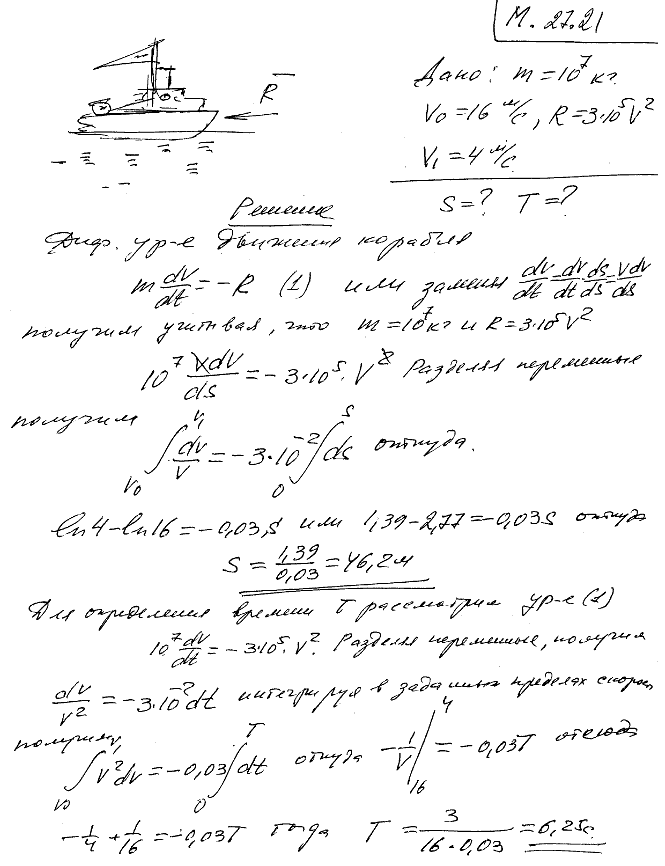 М. 27.21
Дано: m = 10⁷ кг
V₀ = 16 м/с, R = 3·10⁵V²
V₁ = 4 м/с
R
S = ? T = ?
Решение
Диф. ур-е движения корабля
m dv/dt = -R (1) или заменив dv/dt = dv/dt · ds/ds = vdv/ds
получим учитывая, что m = 10⁷ кг и R = 3·10⁵V²
10⁷ VdV/ds = -3·10⁵·V² Разделяя переменные
получим
∫_{V₀}^{V₁} dv/v = -3·10⁻² ∫_0^S ds откуда.
ln4 - ln16 = -0,03S или 1,39 - 2,77 = -0,03S откуда
S = 1,39/0,03 = 46,2 м
Для определения времени T рассмотрим ур-е (1)
10⁷ dv/dt = -3·10⁵·V². Разделяя переменные, получим
dv/v² = -3·10⁻² dt интегрируя в заданных пределах скорос
получим
∫_{V₀}^{V₁} V²dv = -0,03 ∫_0^T dt откуда -1/V |_{16}^{4} = -0,03T отсюда
-1/4 + 1/16 = -0,03T тогда T = 3/(16·0,03) = 6,25с.